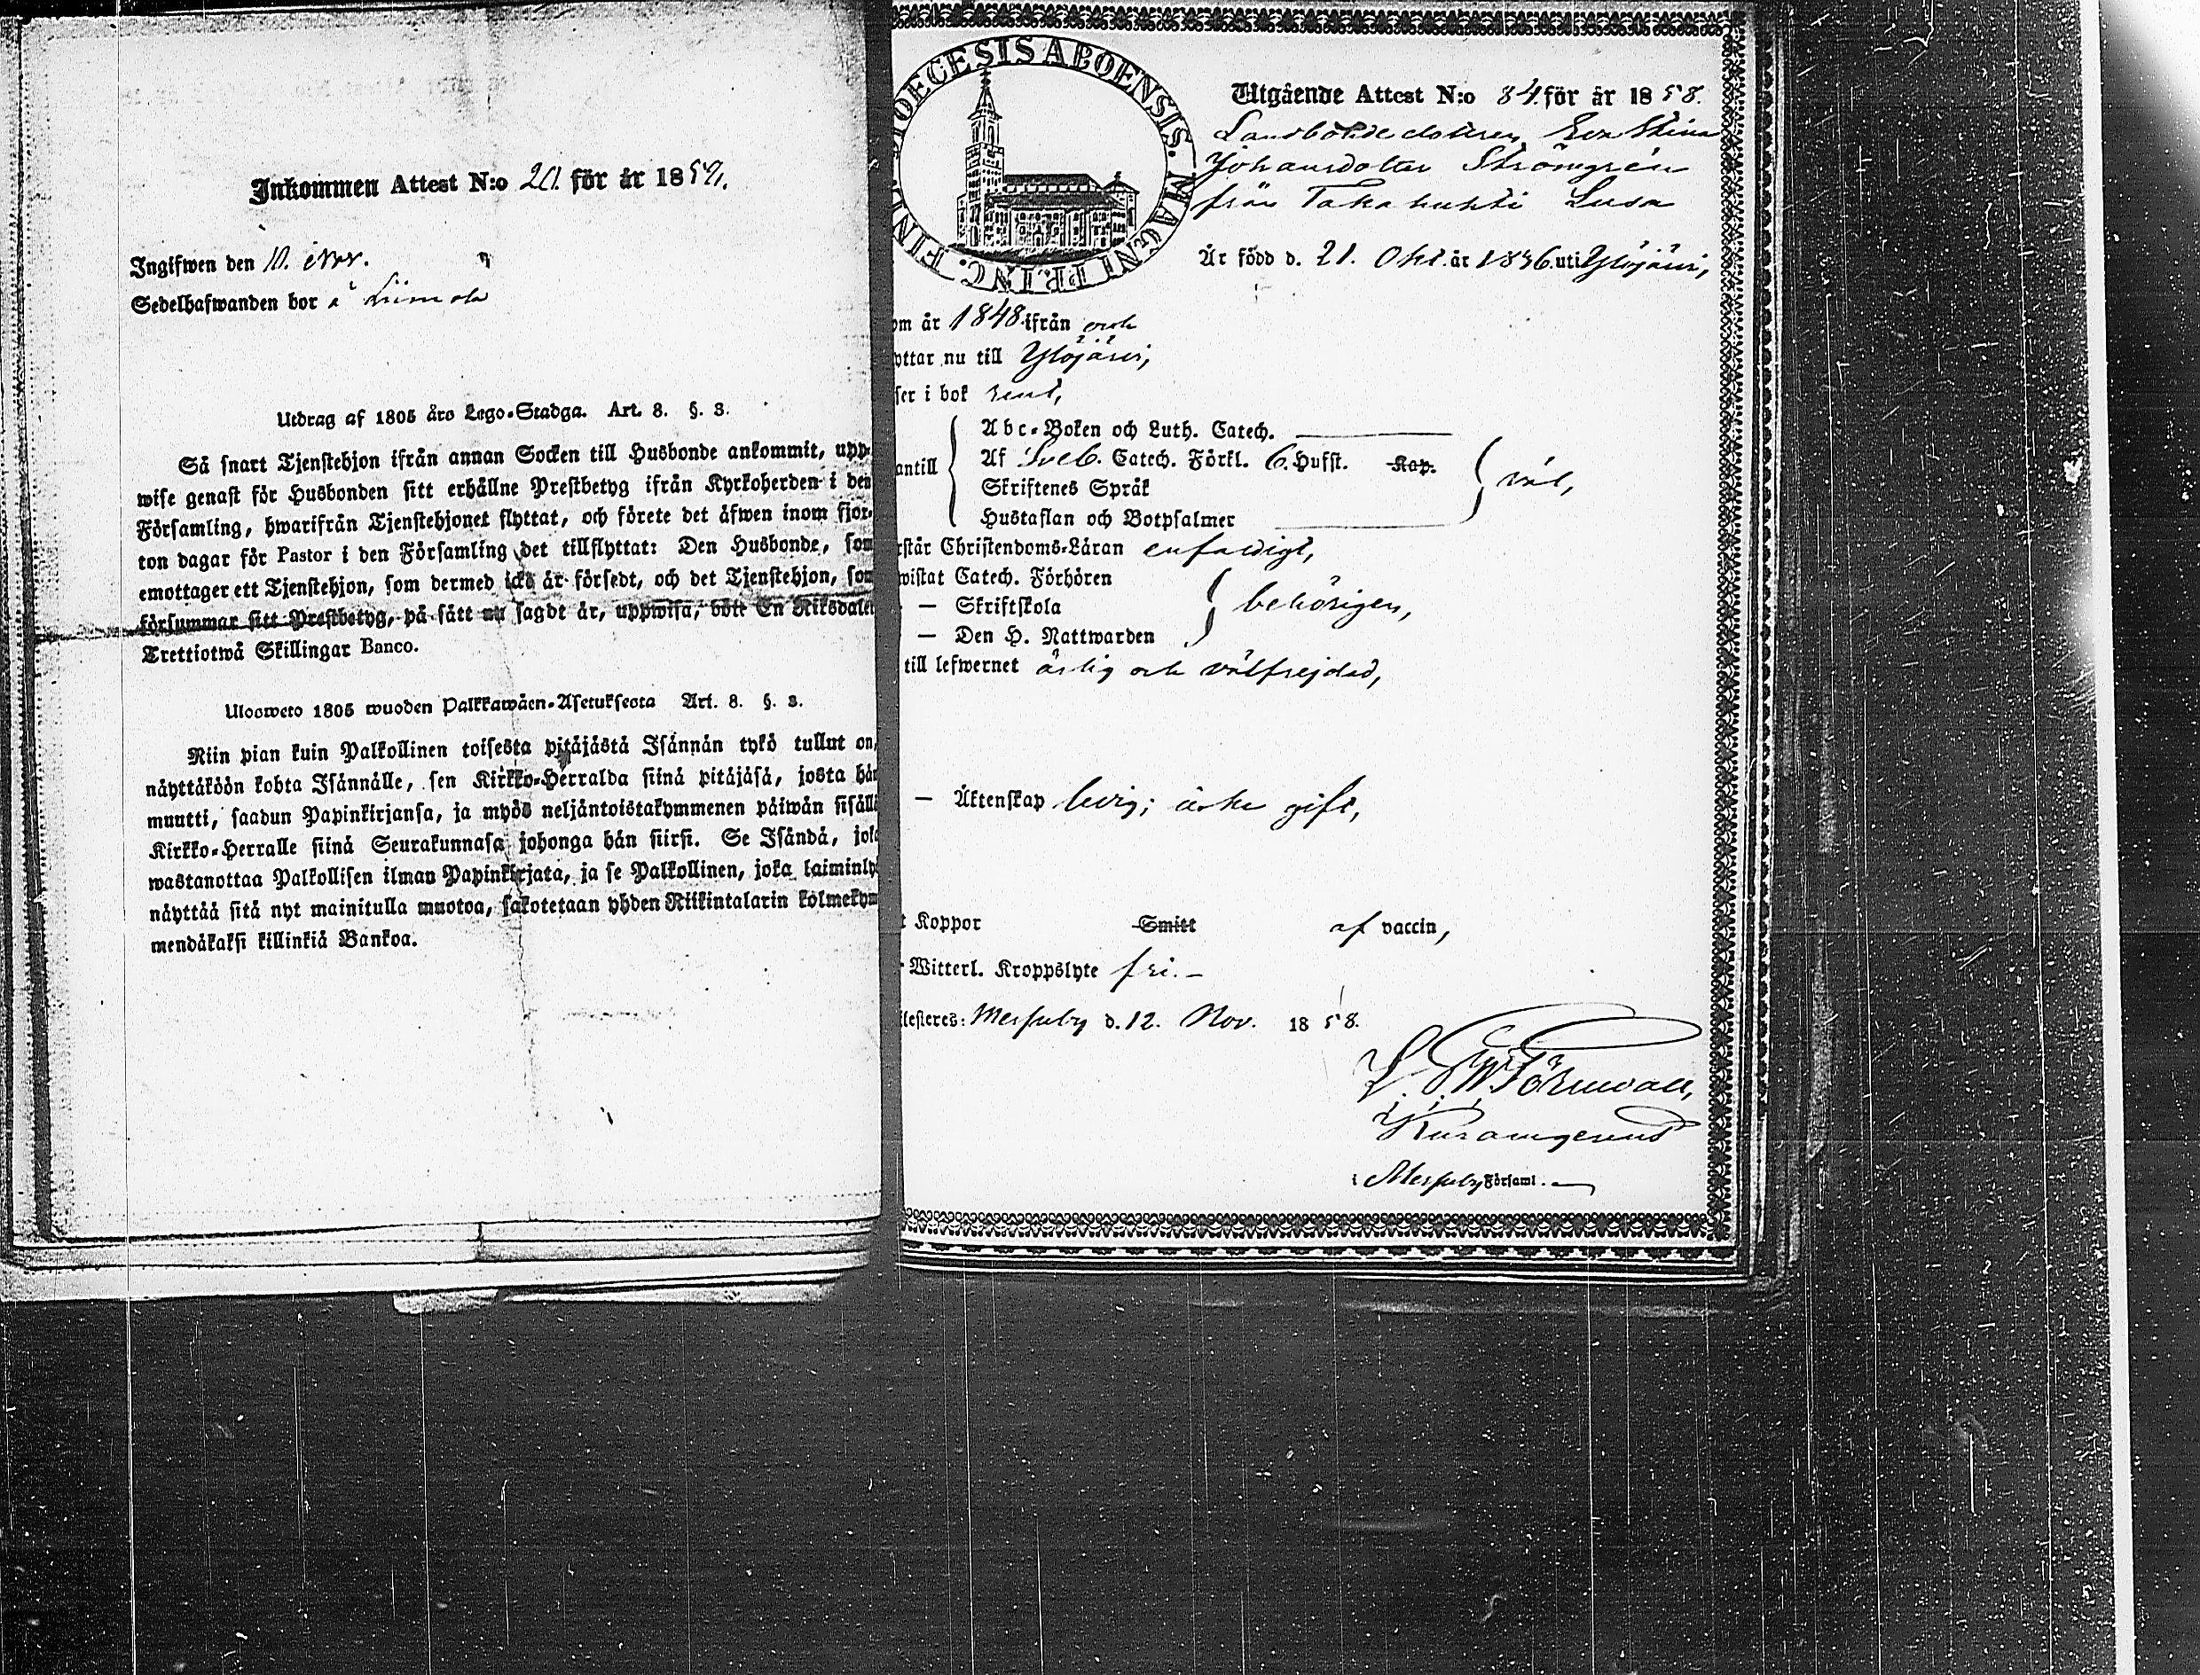 Inkommen Attest N:o 20. för år 185
Ingifwen den 10. Nov.
Sedelhafwanden bor å
Utdrag af 1805 års Lego-Stadga. Art. 8. §. 3.
Så snart Tjenstehjon ifrån annan Socken till Husbonde ankommit, upp-
wise genast för Husbonden sitt erhållne Prestbetyg ifrån Kyrkoherden i den
Församling, hwarifrån Tjenstehjonet flyttat, och förete det äfwen inom fjor-
ton dagar för Pastor i den Församling det tillflyttat: Den Husbonde, som
emottager ett Tjenstehjon, som dermed icke är försedt, och det Tjenstehjon, som
försummar sitt Prestbetyg, på sätt nu sagdt är, uppwisa, böte En Riksdaler
Trettiotwå Skillingar Banco.
Ulosweto 1805 wuoden Palkkawäen-Asetuksesta Art. 8. §. 3.
Niin pian kuin Palkollinen toisesta pitäjästä Isännän tykö tullut on,
näyttäköön kohta Isännälle, sen Kirkko-Herralda siinä pitäjäsä, josta hän
muutti, saadun Papinkirjansa, ja myös neljäntoistakymmenen päiwän sisällä
Kirkko-Herralle siinä Seurakunnasa johonga hän siirsi. Se Isändä, joka
wastanottaa Palkollisen ilman Papinkirjata, ja se Palkollinen, joka laiminly
näyttää sitä nyt mainitulla muotoa, sakotetaan yhden Riikintalarin kolmekym
mendäkaksi killinkiä Bankoa.
DIOECESIS ABOENSIS. MAGNI PRINC. FIN
Utgående Attest N:o 84 för år 1858.
Landbonde dottren Eva Stina
Johansdotter Strömgren
från Takahuhti Lusa
Är född d. 21. Okt. år 1836. uti Ylöjärvi,
om år 1848 ifrån och
yttar nu till Ylöjärvi,
ser i bok rent,
antill
Abc-Boken och Luth. Catech.
Af Sveb. Catech. Förkl. 6. Hufst. Kap.
Skriftenes Språk
Hustaflan och Botpsalmer
väl,
rstår Christendoms-Läran enfaldigt,
wistat Catech. Förhören
— Skriftskola
— Den H. Nattwarden
behörigen,
till lefwernet ärlig och välfrejdad,
— Äktenskap ledig; icke gift,
t Koppor Smitt af vaccin,
Witterl. Kroppslyte fri.-
ilesteres: Messuby d. 12. Nov. 1858.
Törnwall,
i Messuby Församl.